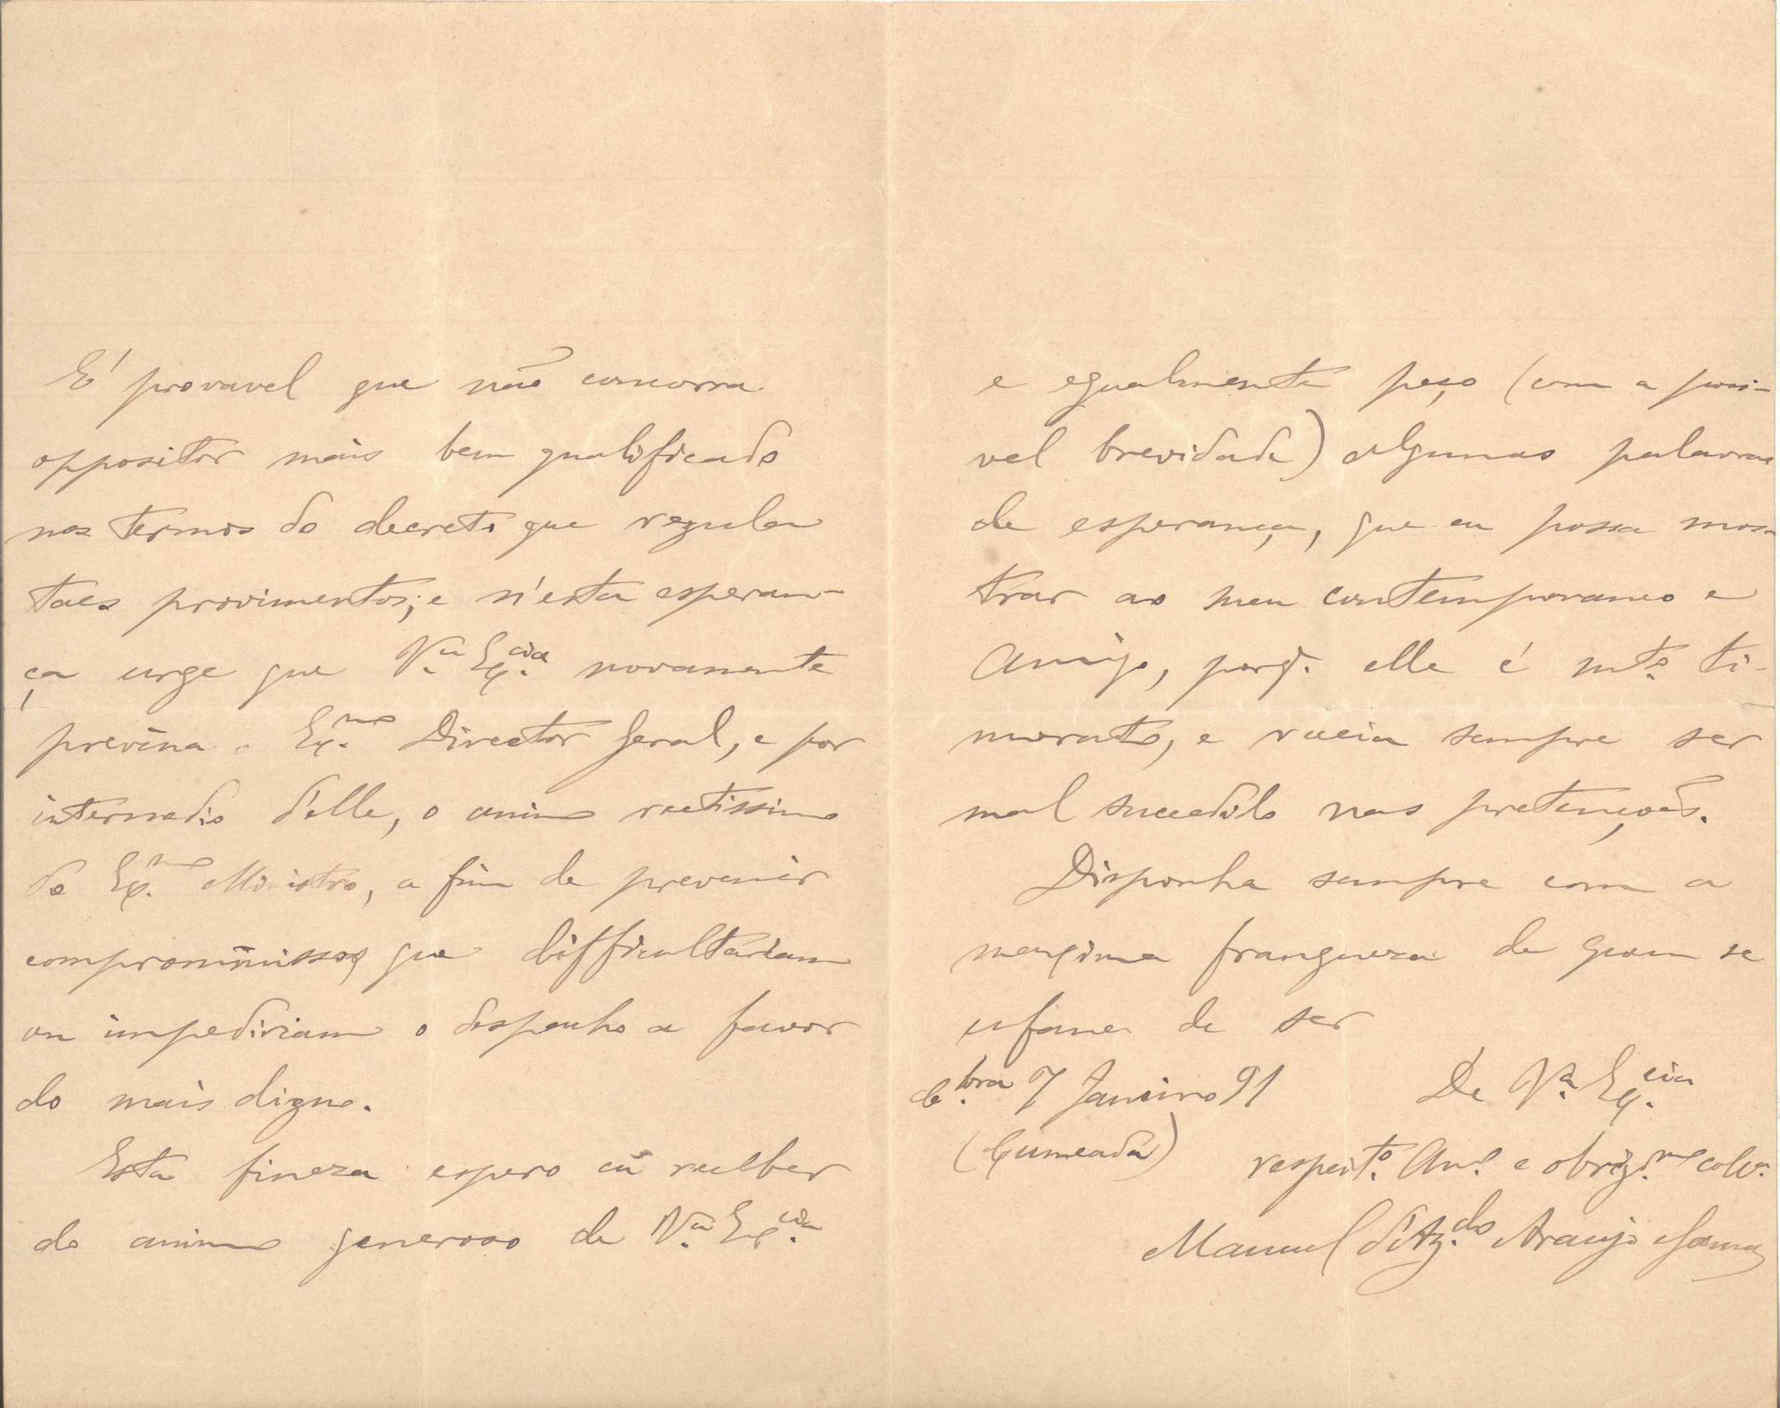 É provavel que não concorra
oppositor mais bem qualificado
nos termos do decreto que regula
taes provimentos; e n'esta esperan-
ça urge que V.ª Ex.cia novamente
previna o Ex.mo Director Geral, e por
intermedio d'elle, o animo rectissimo
do Ex.mo Ministro, a fim de prevenir
compromissos que difficultariam
ou impediriam o despacho a favor
do mais digno.
Esta fineza espero eu receber
do animo generoso de V.ª Ex.cia
e egualmente peço (com a possi-
vel brevidade) algumas palavras
de esperança, que eu possa mos-
trar ao meu contemporaneo e
Amigo, porq. elle é mt.º ti-
morato, e receia sempre ser
mal succedido nas pretenções.
Disponha sempre com a
maxima franqueza de quem se
ufana de ser
C.bra 7 Janeiro 91
De V.ª Ex.cia
(Cumeada)
respeit.º Am.º e obrig.mo
Manuel d'Az.do Araujo Gama